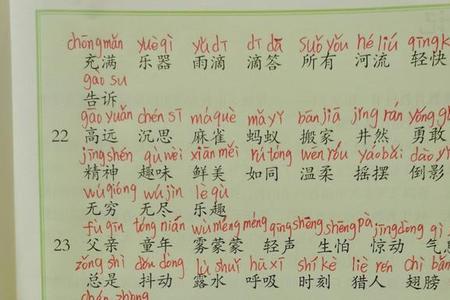 chōngmǎn yuèqì yǔdī dī dā suǒyǒu héliú qīngk
充满 乐器 雨滴 滴答 所有 河流 轻快
gào su
告诉
gāo yuǎn chén sī máquè mǎyǐ bānjiā jǐng rán yǒng gǎ
22 高远 沉思 麻雀 蚂蚁 搬家 井然 勇敢
jīngshén qùwèi xiānměi rútóng wēnróu yáobǎi dào yǐ
精神 趣味 鲜美 如同 温柔 摇摆 倒影
wúqióng wújìn lèqù
无穷 无尽 乐趣
fùqīn tóng nián wùméngméng qīngshēng shēngpà jīngdòng qì
23 父亲 童年 雾蒙蒙 轻声 生怕 惊动
zǒng shì dǒu dòng lù shuǐ hūxī shíkè liè rén chì bǎn
总是 抖动 露水 呼吸 时刻 猎人 翅膀